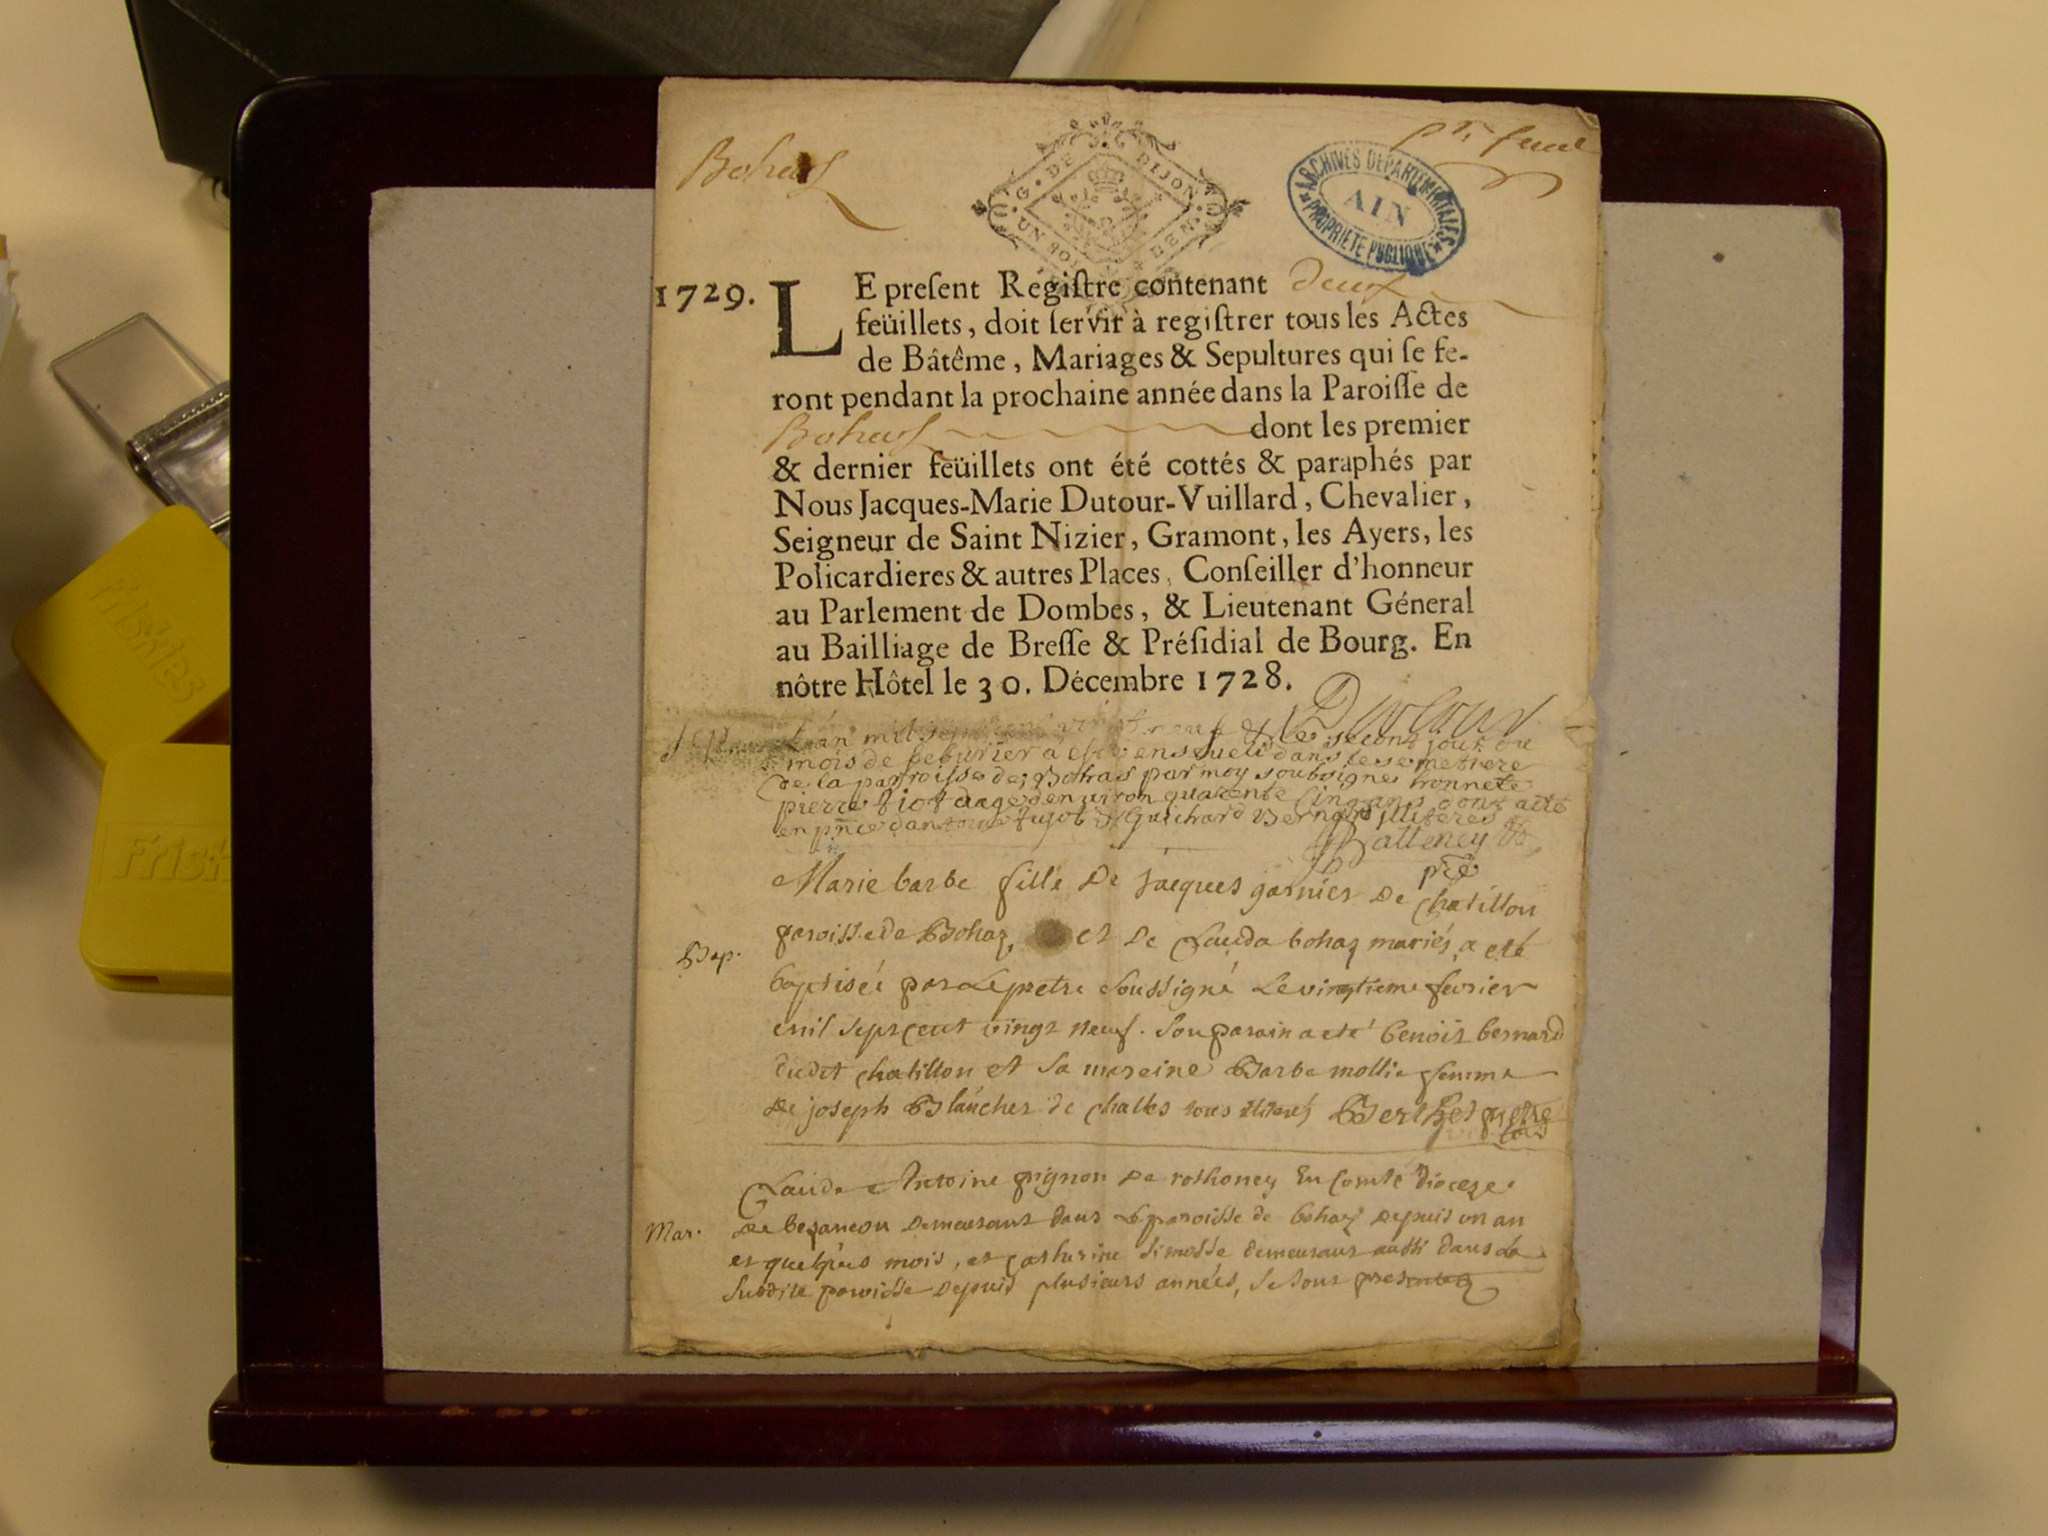 Bohas
pr. feuil
G. DE DIJON
UN SOL
DEN.
ARCHIVES DEPARTEMENTALES
AIN
PROPRIETE PUBLIQUE
1729.
LE preſent Regiſtre contenant deux
feüillets, doit ſervir à regiſtrer tous les Actes
de Bâtême, Mariages & Sepultures qui ſe fe-
ront pendant la prochaine année dans la Paroiſſe de
Bohas dont les premier
& dernier feüillets ont été cottés & paraphés par
Nous Jacques-Marie Dutour-Vuillard, Chevalier,
Seigneur de Saint Nizier, Gramont, les Ayers, les
Policardieres & autres Places, Conſeiller d'honneur
au Parlement de Dombes, & Lieutenant Géneral
au Bailliage de Breſſe & Préſidial de Bourg. En
nôtre Hôtel le 30. Décembre 1728.
Dutour
L'an mil sept cent vingt neuf & le second jour du
mois de feburier a esté enseueli dans le semetiere
de la parroisse de Bohas par moy soubsigné honnete
pierre d'age denuiron quarente cinq ans dont acte
en pñce dantoine & Guichard Bernard illiteres
pre
Marie barbe fille de jacques garnier de chatillon
paroisse de Bohaz, et de Clauda bohaz mariés, a eté
Bap.
baptiseé par le pretre soussigné le vingtieme fevrier
mil sept cent vingt neuf. Son parain a eté benoit bernard
dudit chatillon et sa mareine Barbe mollie femme
de joseph Blanchet de chales tous illiterés Berthet pretre
Claude Antoine pignon de rothoney En Comté dioceze
Mar.
de besancon demeurant dans la paroisse de bohaz depuis un an
et quelques mois, et Catherine Simosse demeurant aussi dans la
susdite paroisse depuis plusieurs années, se sont presentez
friskies
Frisk